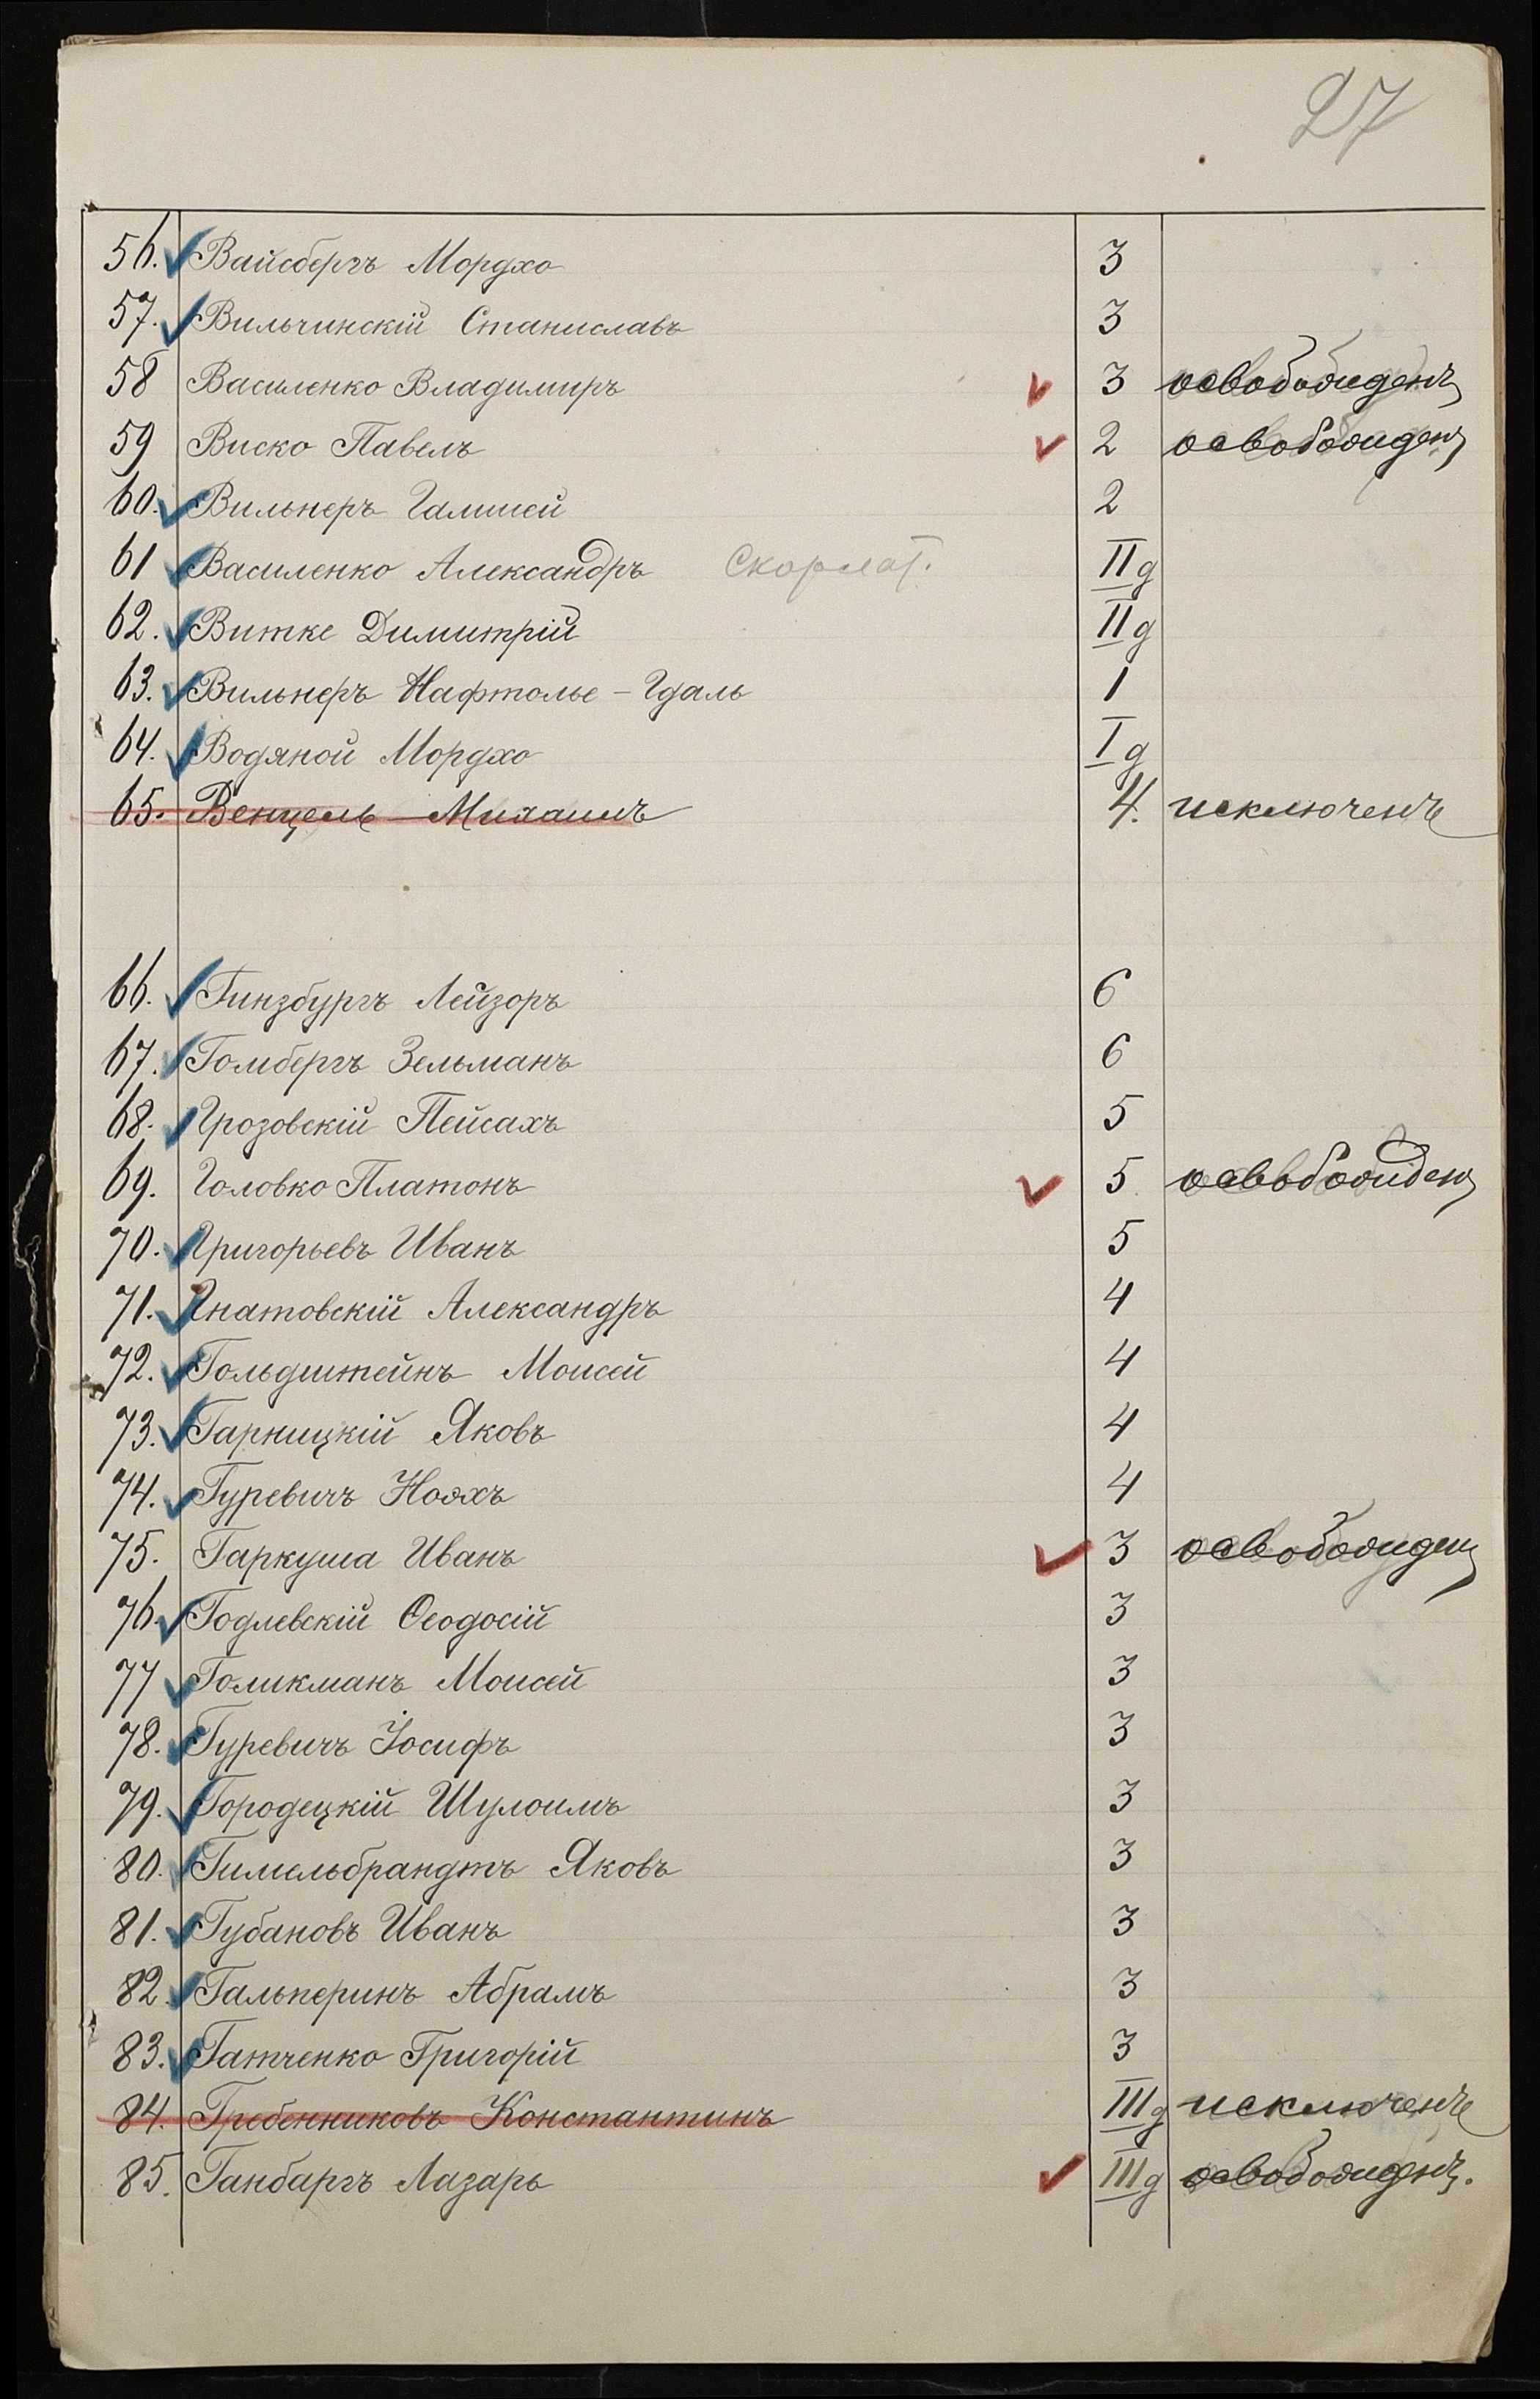 27
56. Вайсбергъ Мордхо 3
57. Вильчинскій Станиславъ 3
58 Василенко Владимиръ 3 освобожденъ
59 Виско Павелъ 2 освобожденъ
60. Вильнеръ Галилей 2
61 Василенко Александръ Скорлат. II д
62. Витке Димитрій II д
63. Вильнеръ Нафтолье-Гдаль 1
64. Водяной Мордхо I д
65. Венцель Михаилъ 4. исключенъ
66. Гинзбургъ Лейзоръ 6
67. Гомбергъ Зельманъ 6
68. Грозовскій Пейсахъ 5
69. Головко Платонъ 5 освобожденъ
70. Григорьевъ Иванъ 5
71. Гнатовскій Александръ 4
72. Гольдштейнъ Моисей 4
73. Гарницкій Яковъ 4
74. Гуревичъ Ноахъ 4
75. Гаркуша Иванъ 3 освобожденъ
76. Годлевскій Ѳеодосій 3
77 Голикманъ Моисей 3
78. Гуревичъ Іосифъ 3
79. Городецкій Шулоимъ 3
80. Гимельбрандтъ Яковъ 3
81. Губановъ Иванъ 3
82. Гальперинъ Абрамъ 3
83. Гатченко Григорій 3
84. Гребенниковъ Константинъ III д исключенъ
85. Ганбаргъ Лазарь III д освобожденъ.